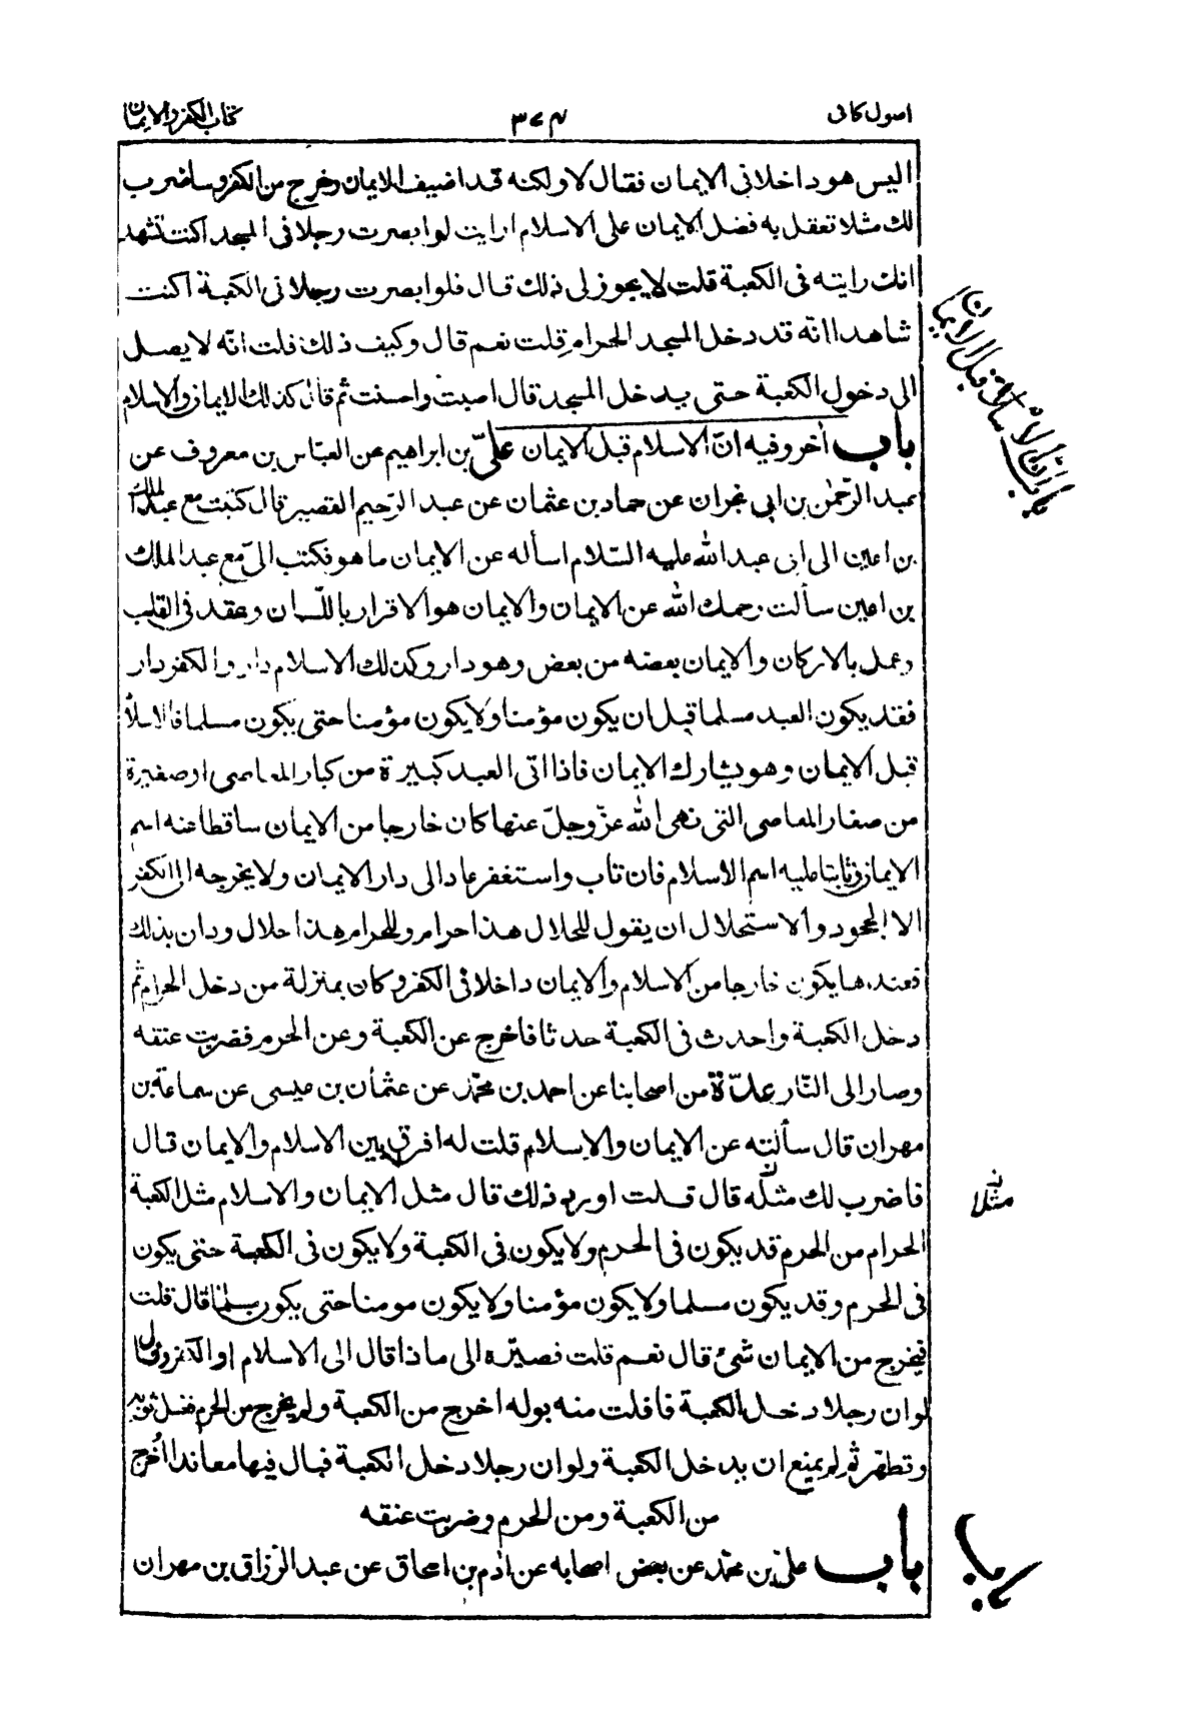 اصول كافى
٣٨٤
كتاب الكفر والايمان
اليس هو داخلا فى الايمان فقال لا ولكنه قد اضيف الى الايمان وخرج من الكفر وساضرب
لك مثلا تعقل به فضل الايمان على الاسلام ارايت لو ابصرت رجلا فى المسجد اكنت تشهد
انك رايته فى الكعبة قلت لا يجوز لى ذلك قال فلو ابصرت رجلا فى الكعبة اكنت
شاهدا انّه قد دخل المسجد الحرام قلت نعم قال وكيف ذلك قلت انّه لا يصل
الى دخول الكعبة حتى يدخل المسجد قال اصبت واحسنت ثم قال كذلك الايمان والاسلام
باب آخر وفيه انّ الاسلام قبل الايمان علىّ بن ابراهيم عن العبّاس بن معروف عن
عبد الرّحمٰن بن ابى نجران عن حماد بن عثمان عن عبد الرّحيم القصير قال كتبت مع عبد الملك
بن اعين الى ابى عبد الله عليه السّلام اسأله عن الايمان ما هو فكتب الىّ مع عبد الملك
بن اعين سألت رحمك الله عن الايمان والايمان هو الاقرار باللّسان وعقد فى القلب
وعمل بالاركان والايمان بعضه من بعض وهو دار وكذلك الاسلام دار والكفر دار
فقد يكون العبد مسلما قبل ان يكون مؤمنا ولا يكون مؤمنا حتى يكون مسلما فالاسلام
قبل الايمان وهو يشارك الايمان فاذا اتى العبد كبيرة من كبار المعاصى او صغيرة
من صغار المعاصى التى نهى الله عزّ وجلّ عنها كان خارجا من الايمان ساقطا عنه اسم
الايمان وثابتا عليه اسم الاسلام فان تاب واستغفر عاد الى دار الايمان ولا يخرجه الى الكفر
الا الجحود والاستحلال ان يقول للحلال هذا حرام وللحرام هذا حلال ودان بذلك
فعندها يكون خارجا من الاسلام والايمان داخلا فى الكفر وكان بمنزلة من دخل الحرام ثم
دخل الكعبة واحدث فى الكعبة حدثا فاخرج عن الكعبة وعن الحرم فضربت عنقه
وصار الى النّار عدّة من اصحابنا عن احمد بن محمّد عن عثمان بن عيسى عن سماعة بن
مهران قال سألته عن الايمان والاسلام قلت له افرق بين الاسلام والايمان قال
فاضرب لك مثله قال قلت اورد ذلك قال مثل الايمان والاسلام مثل الكعبة
الحرام من الحرم قد يكون فى الحرم ولا يكون فى الكعبة ولا يكون فى الكعبة حتى يكون
فى الحرم وقد يكون مسلما ولا يكون مؤمنا ولا يكون مومنا حتى يكون مسلما قال قلت
فيخرج من الايمان شئ قال نعم قلت فصيّره الى ماذا قال الى الاسلام او الكفر وقال
لو ان رجلا دخل الكعبة فافلت منه بوله اخرج من الكعبة ولم يخرج من الحرم فغسل ثوبه
وتطهّر ثم لم يمنع ان يدخل الكعبة ولو ان رجلا دخل الكعبة فبال فيها معاندا اُخرج
من الكعبة ومن الحرم وضربت عنقه
باب علىّ بن محمّد عن بعض اصحابه عن آدم بن اسحاق عن عبد الرزاق بن مهران
باب انّ الاسلام قبل الايمان
مثلا
باب